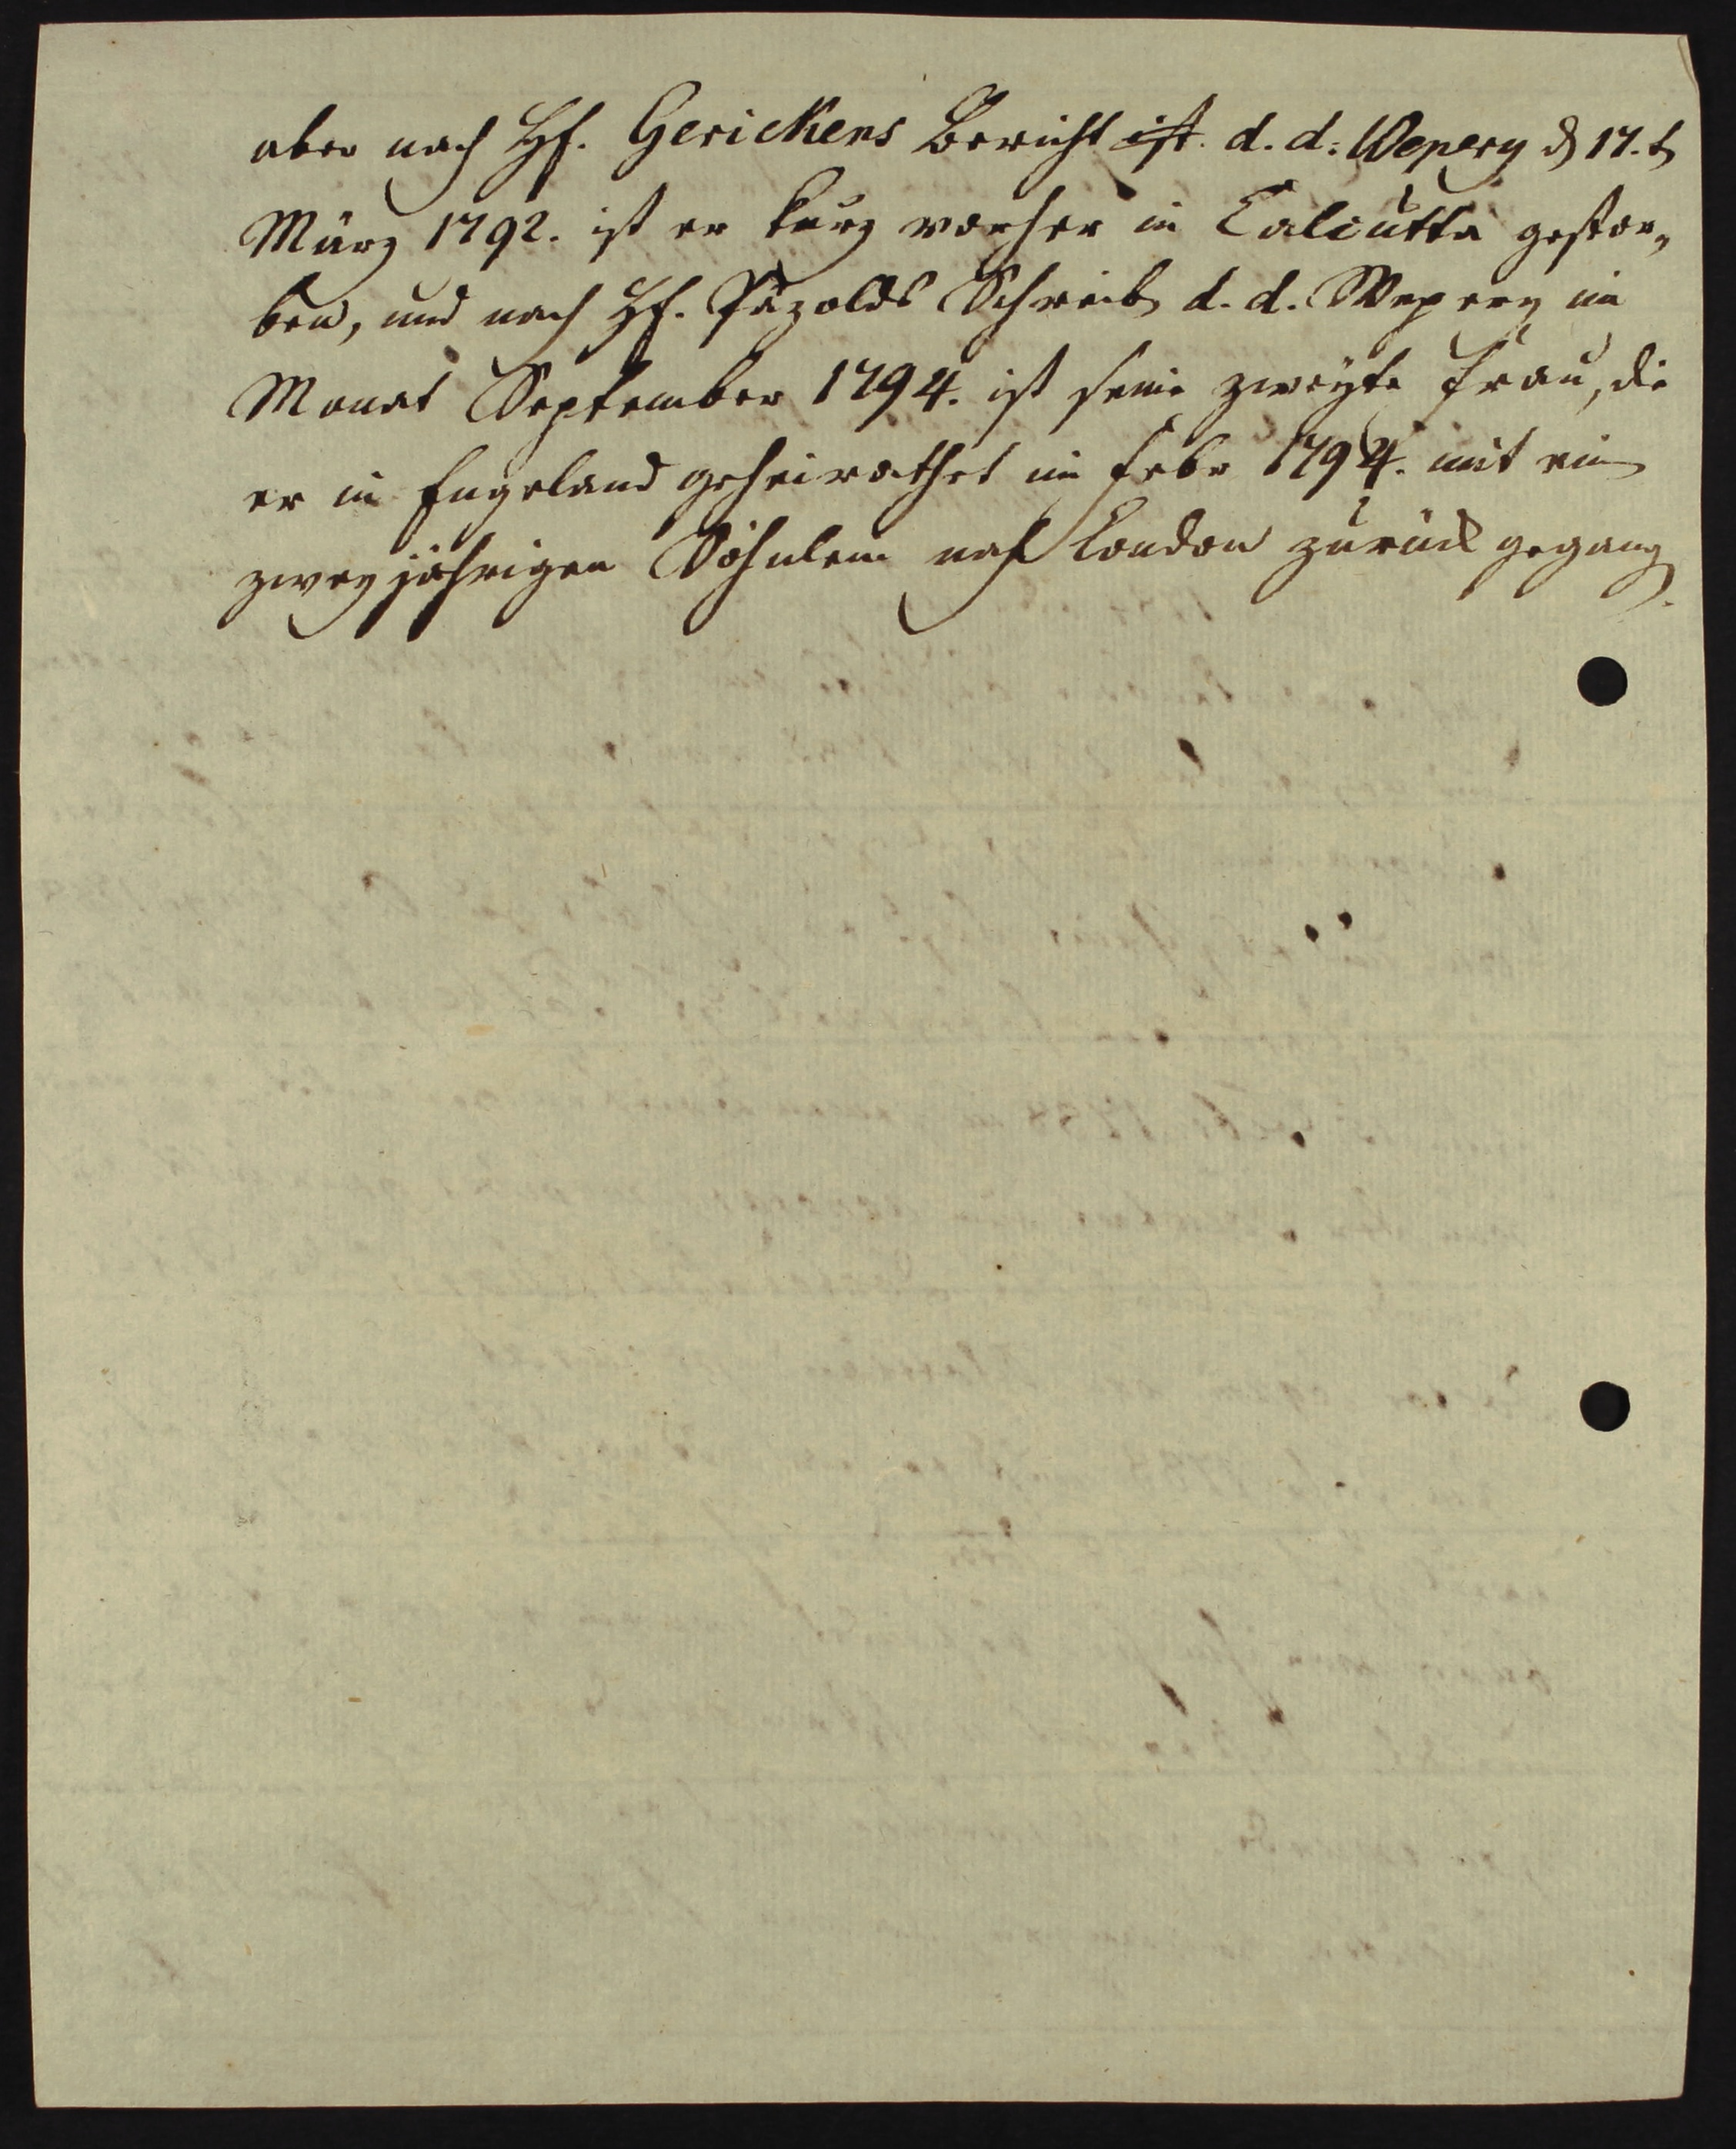 aber nach Hℏ. Gerickens Bericht ist d. d. Wepery d 17.t
März 1792. ist er kurz vorher in Calcutta gestor-
ben, und nach Hℏ. Päzolds Schreib d. d. Wepery im
Monat September 1794. ist seine zweyte Frau, die
er in Engeland geheirathet im Febr 1794. mit ein
zwey jährigen Söhnlein nach London zurück gegang.